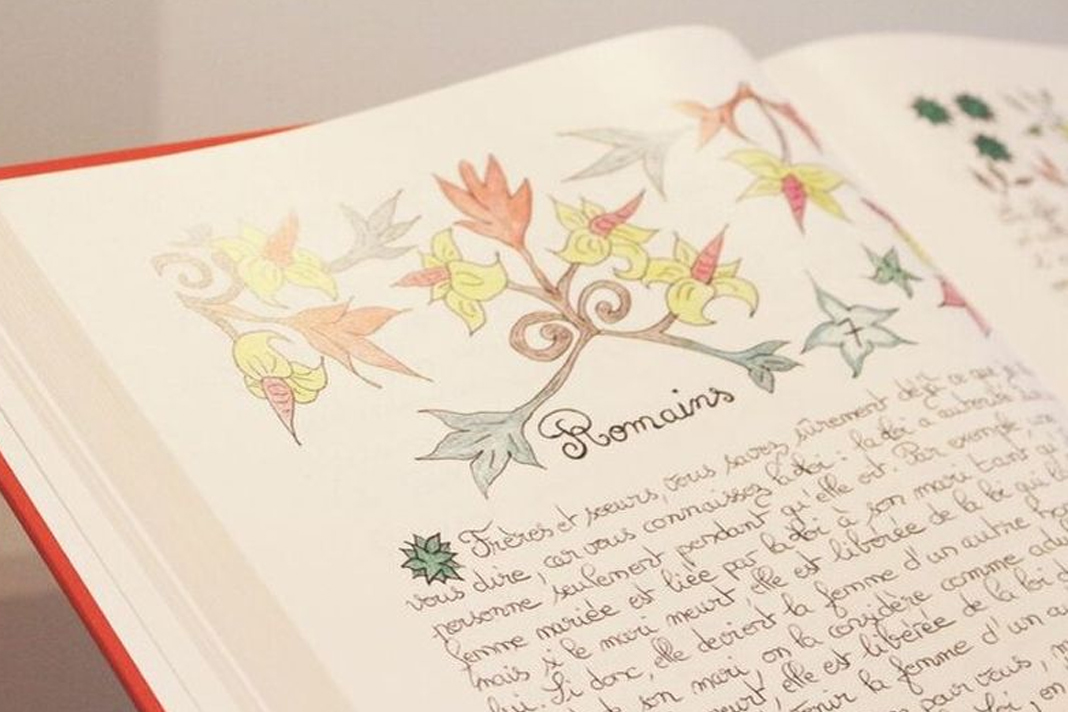 7
Romains
Frères et sœurs, vous savez sûrement déjà ce que je
vous dire, car vous connaissez la loi : la loi a autorité
personne seulement pendant qu'elle vit. Par exemple, une
femme mariée est liée par la loi à son mari tant qu'
mais si le mari meurt elle est libérée de la loi qui
lui. Si donc, elle devient la femme d'un autre
de son mari, on la considère comme adul
meurt, elle est libérée de la loi
la femme d'un au
pour vous,
loi, en